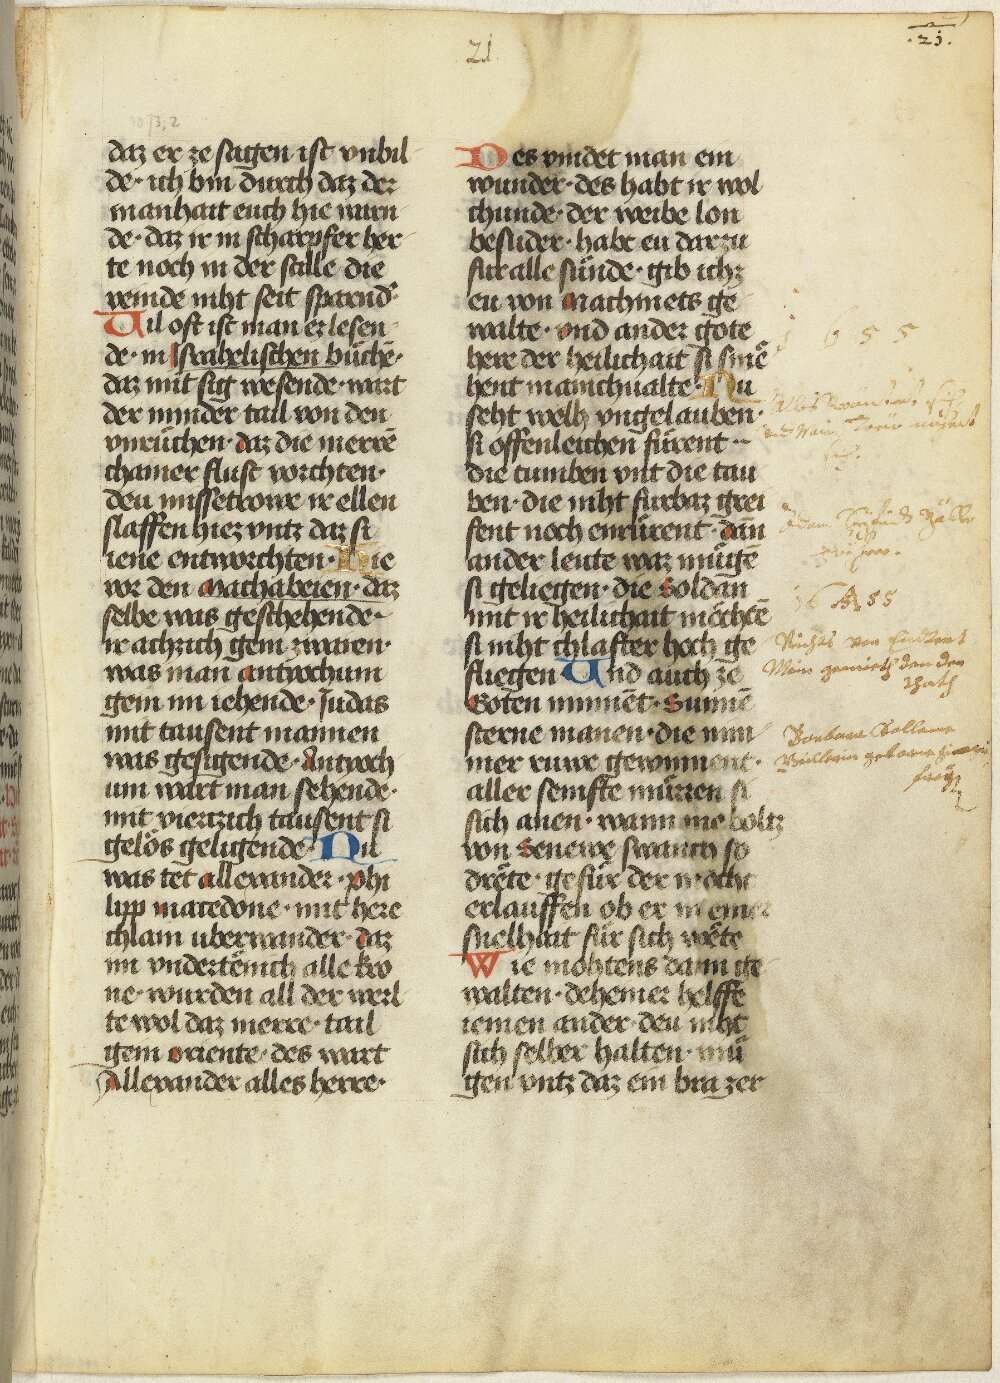 21
.21.
daz er ze sagen ist vnbil
de· ich bin durch daz der
manhait euch hie warn
de· daz ir in scharpfer her
te noch in der salle die
veinde niht seit sparnd·
Uil oft ist man er lesen
de· in Israhelischen büchē·
daz mit sig wesende· wart
der minder tail von den
vnrüchen· daz die merrē
chamer flust vorchten·
den missetrowe ir ellen
slaffen hiez vntz daz si
iene entworchten· Hie
vor den Machabeien· daz
selbe was geschehende·
ir achzich gem zwaien·
was man antwchum
gem im iehende· Judas
mit tausent mannen
was gesigende· Antwoch
um wart man sehende·
mit viertzich tausent si
gelös geligende· Nu
was tet allexander· phi
lipp macedone· mit here
chlain uberwander· daz
im vndertēnich alle kro
ne· wurden all der werl
te wol daz merre· tail
gem oriente· des wart
Allexander alles herre·
Des vindet man ein
wunder· des habt ir wol
chunde· der weibe lon
besuder· habt eu dar zu
fur alle sünde· gib ichz
eu von Machmets ge
walte· vnd ander gote
here der heilichait si sinē
hent manichualte· Nu
seht welh vngelauben·
si offenleichen fürent·
die tumben vnt die tau
ben· die niht furbaz grei
fent noch enrürent· dan
ander leute waz mügē
si geliegen· die Soldan
mit ir heilichait möchtē
si niht chlafter hoch ge
fliegen Und auch ze
Goten niminēt· Sunnē
sterne manen· die nim
mer ruwe gewinnent·
aller semfte müzzen si
sich anen· wann nie boltz
von Senewe swanch so
drēte· gefür der möcht
erlauffen ob er in einer
snelhait für sich wēte
Wie mohtens dann ge
walten· deheiner helffe
iemen ander· den niht
sich selber halten· mü
gen vntz daz ein bra zer
1655
16 55